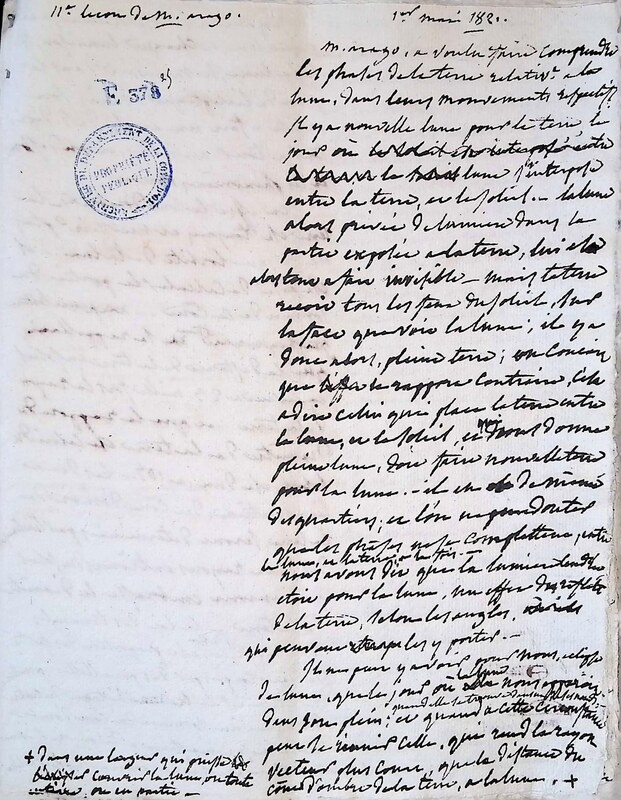 11e. lecon de M. arago.
1er mars 182 .
M. arago, a voulu faire comprendre
les phases de la terre relativt. a la
lune, dans leurs mouvements respectifs.
Il y a nouvelle lune pour la terre le
jour où
la lune s'interpose
entre la terre, et le soleil. – la lune
alors privée de lumiere dans la
partie exposée a la terre, lui
a faire invisible – mais la terre
recoit tous les feux du soleil, sur
la face que voit la lune; il y a
donc alors, pleine terre; on concoit
que le rapport contraire, c'est
a dire celui qui place la terre entre
la lune, et le soleil, et qui nous donne
pleine lune, doit faire nouvelle terre
pour la lune. – il en de meme
des quartiers; et l'on ne peut douter
que les phases ne se completent, entre
la lune, et la terre
nous avons dit que la lumiere cendrée
etoit pour la lune, un effet des reflets
de la terre, selon les angles,
qui peuvent les y porter. –
Il ne peut y avoir pour nous, eclipse
de lune, que le jour où la lune nous
dans son plein; et quand a cette circonstance
quand elle se trouve dans
peut se reunir celle, qui rend le rayon
vecteur plus court, que la distance du
cone d'ombre de la terre, a la lune. +
+ dans une largeur qui puisse
couvrir la lune, ou toute
entiere, ou en partie –
E 378 25
ARCHIVES DU DÉPARTEMENT DE LA COTE D'OR
PROPRIÉTÉ
PUBLIQUE